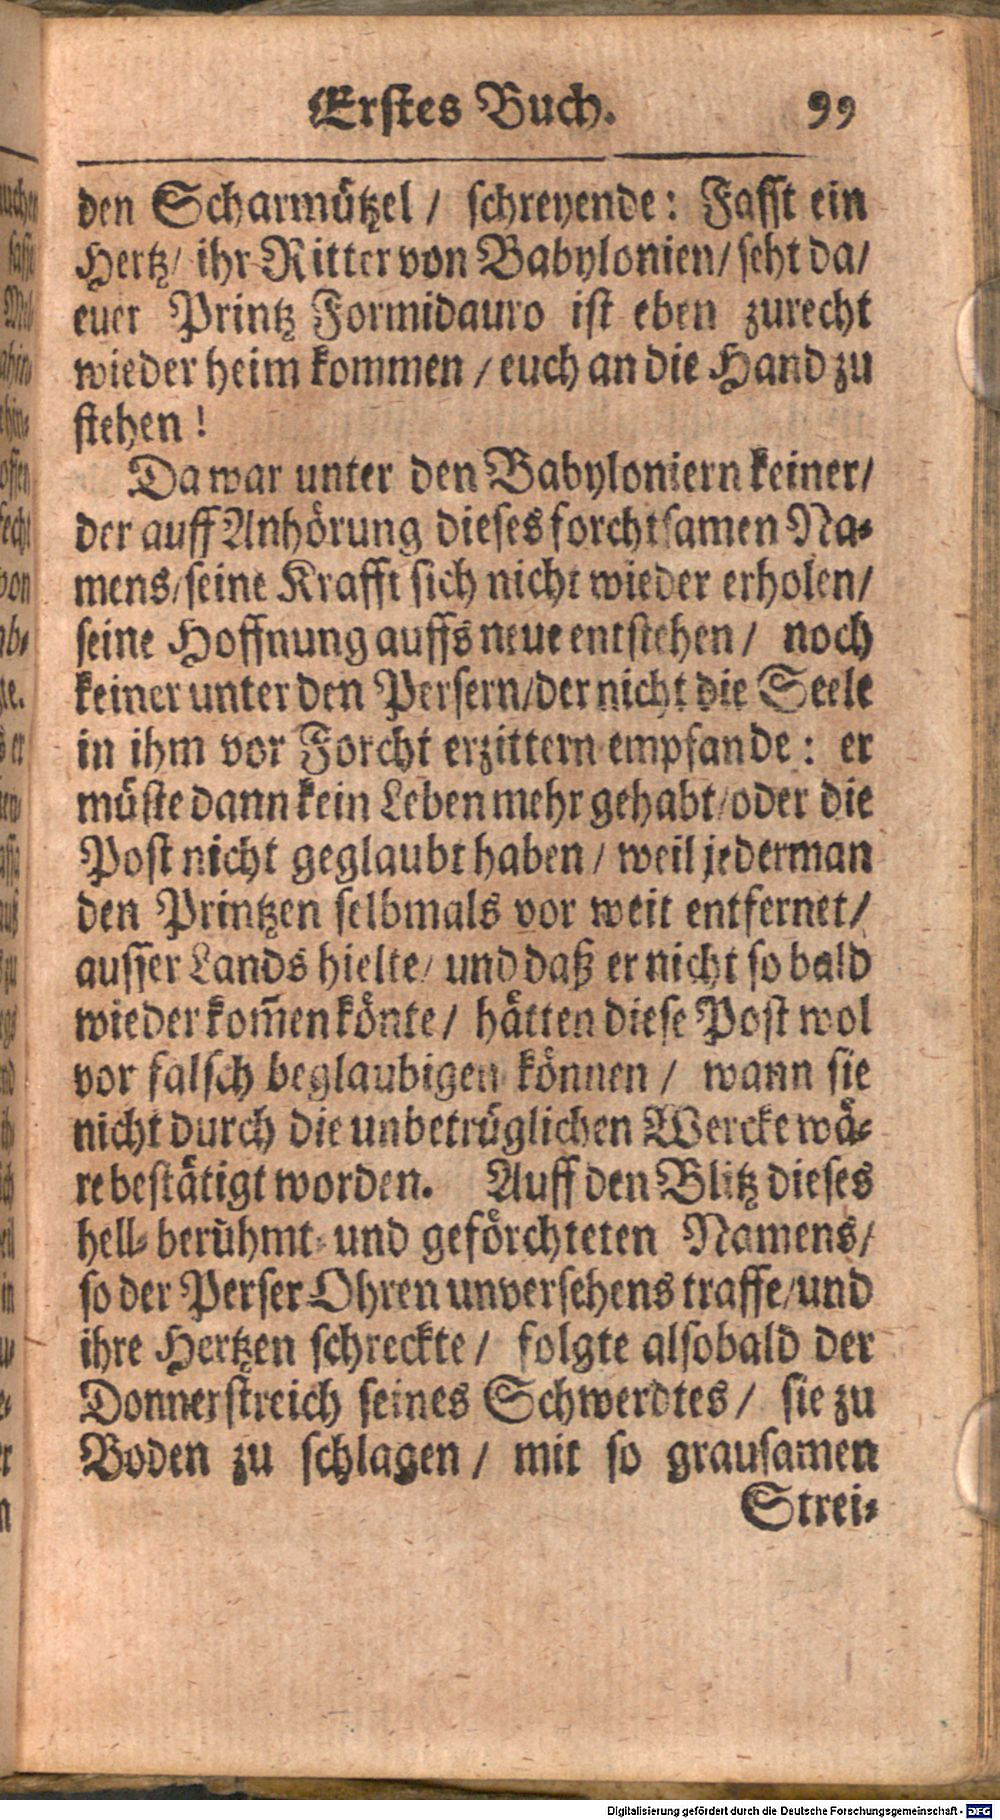 Erstes Buch. 99
den Scharmützel / schreyende: Fasst ein
Hertz / ihr Ritter von Babylonien / seht da /
euer Printz Formidauro ist eben zurecht
wieder heim kommen / euch an die Hand zu
stehen!
Da war unter den Babyloniern keiner /
der auff Anhörung dieses forchtsamen Na-
mens / seine Krafft sich nicht wieder erholen /
seine Hoffnung auffs neue entstehen / noch
keiner unter den Persern / der nicht die Seele
in ihm vor Forcht erzittern empfande: er
müste dann kein Leben mehr gehabt / oder die
Post nicht geglaubt haben / weil jederman
den Printzen selbmals vor weit entfernet /
ausser Lands hielte / und daß er nicht so bald
wieder kom̃en könte / hätten diese Post wol
vor falsch beglaubigen können / wann sie
nicht durch die unbetrüglichen Wercke wä-
re bestätigt worden. Auff den Blitz dieses
hell-berühmt- und geförchteten Namens /
so der Perser Ohren unversehens traffe / und
ihre Hertzen schreckte / folgte alsobald der
Donnerstreich seines Schwerdtes / sie zu
Boden zu schlagen / mit so grausamen
Strei-
Digitalisierung gefördert durch die Deutsche Forschungsgemeinschaft - DFG